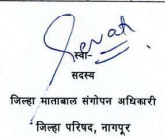 स्वा-
सदस्य
जिल्हा माताबाल संगोपन अधिकारी
जिल्हा परिषद, नागपूर